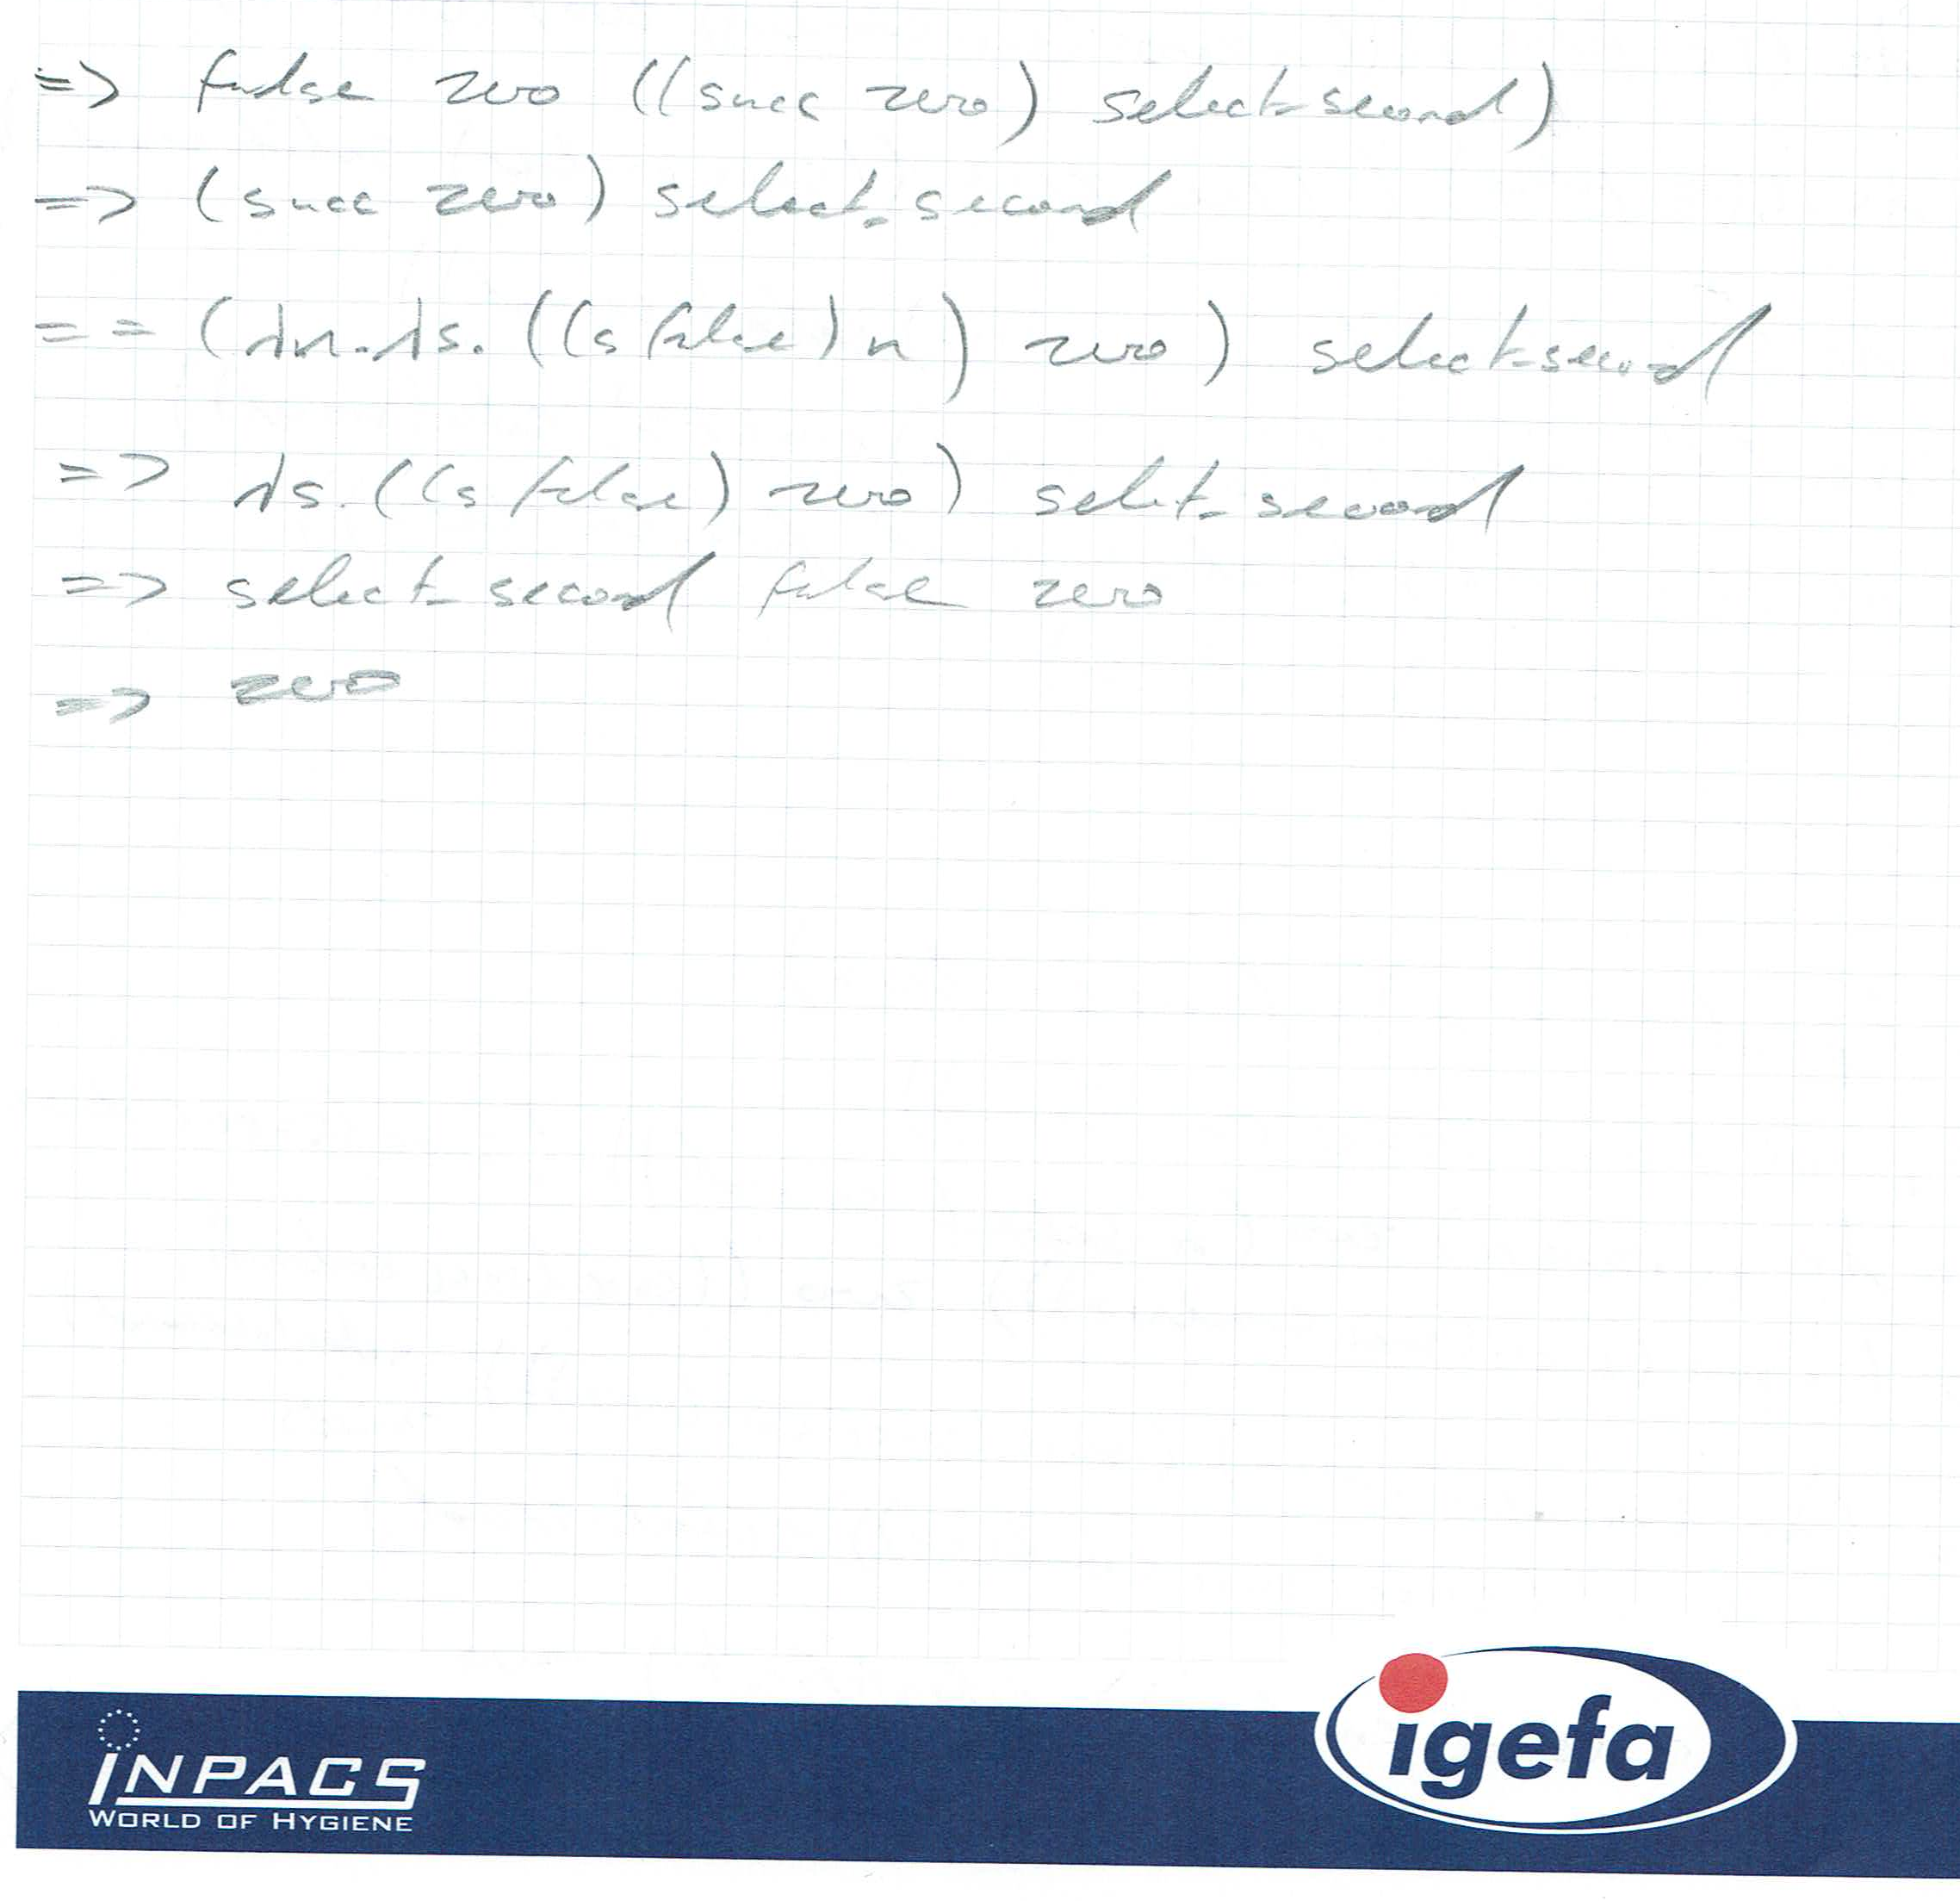 => false zero ((succ zero) select-second)
=> (succ zero) select_second
== (λn.λs.((s false) n) zero) select-second
=> λs.((s false) zero) select_second
=> select_second false zero
=> zero
INPACS
WORLD OF HYGIENE
igefa